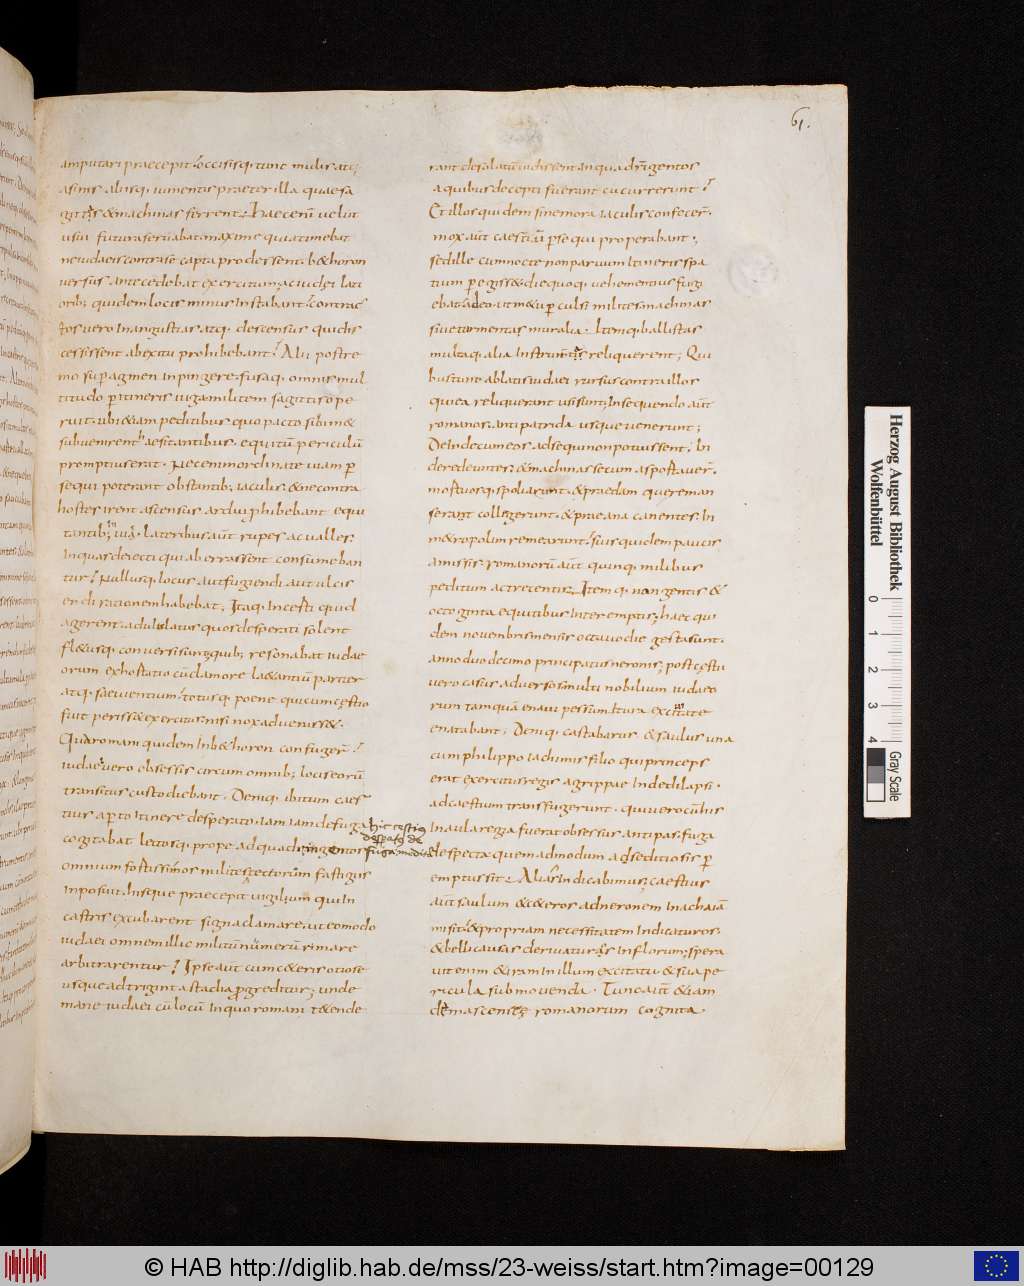 61.
amputari praecepit; occisisq; tunc mulis ati;
asinis aliisq; iumentis praeter illa quae sa
gittas & machinas ferrent. haec enī velut
usui futura seruabat maxime quia timebat
ne iudaeis contra se capta prodessent. b&horon
versus antecedebat exercitum; ac iudei lati
orib; quidem locis minus instabant; contrac
tos vero in angustias atq; descensus quidis
cessissent ab exitu prohibebant; Alii postre
mo supagmen inpingere. fusaq; omnis mul
titudo p itineris iuga militem sagittis ope
ruit. ubi &iam peditibus quo pacto sibim&
subvenirent haesitantibus. equitū periculū
promptius erat. Nec enim ordinate viam p
sequi poterant obstantib; iaculis. & ne contra
hostes irent ascensus ardui phibebant equi
tantib; Lateribus aūt rupes ac valles;
In quas deiecti qui aberrassent consumeban
tur; Nullusq; locus aut fugiendi aut ulcis
cendi rationem habebat; Itaq; incerti quid
agerent. ad ululatus quos desperati solent
fl&usq; conversi sunt; quib; resonabat iudae
orum exhortatio cū clamore la&antiū pariter
atq; saeuientium; totusq; poene qui cum cestio
fuit periss& exercitus. nisi nox adueniss&.
Qua romani quidem in b&horon confugerī;
iudaei vero obsessis circum omnib; locis eorū
transitus custodiebant. Deniq; ibi tum caes
tius apto itinere desperato. iam iam de fuga
cogitabat lectosq; prope ad quadringentos
omnium fortissimos milites tectorum fastigiis
inposuit. hisque praecepit vigilium qui in
castris excubarent signa clamare. ut eo modo
iudaei omnem illic militū numerū remare
arbitrarentur; Ipse aūt cum c&eris otiose
usque ad triginta stadia pgreditur; unde
mane iudaei cū locū in quo romani t&ende
hic cestius
desperat9 de
fuga medit
rant desolatū vidissent. in quadringentos
a quibus decepti fuerant cucurrerunt;
Et illos quidem sine mora iaculis confecerī.
mox aūt caestiū pse qui properabant;
sed ille cum nocte non parvum itineris spa
tium peregiss& die quoq; vehementius fugi
ebat; adeo. ut m&u pculsi milites machinas
sive tormentas muralia. Itemq; ballistas
multaq; alia instrumtis reliquerent; Qui
bus tunc ablatis iudaei rursus contra illos
qui ea reliquerant usi sunt; Insequendo aūt
romanos. antipatrida usque venerunt;
Dein de cum eos adsequi non potuissent. In
de redeuntes. & machinas secum asportaverī.
mortuosq; spoliarunt. & praedam quereman
serant collegerunt. & praeana canentes. In
m&ropolim remearunt; suis quidem paucis
amissis. romanorū aūt quinq; milibus
peditum ac trecentis. Itemq; nongentis &
octoginta equitibus interemptis; haec qui
dem novembris mensis octavo die gesta sunt.
anno duodecimo principatus neronis; post cestii
vero casus adversos. multi nobilium iudaeo
rum tamquā e navi pessum itura e civitate
enatabant; Deniq; castabarus & saulus una
cum philippo iachimis filio qui princeps
erat exercitus regis agrippae. Inde dilapsi.
ad caestium transfugerunt. qui vero cū his
in aula regia fuerat obsessus antipas. fuga
despecta. quem admodum a seditiosis p
emptus sit. Alias indicabimus; caestius
aūt saulum & c&eros ad neronem in achaiā
misit. & propriam necessitatem indicaturos.
& belli causas derivaturos in florum; spera
vit enim & iram in illum excitatū & sua pe
ricula submovenda. Tunc aūt &iam
damasceni romanorum cognita
Herzog August Bibliothek
Wolfenbüttel
0 1 2 3 4
Gray Scale
© HAB http://diglib.hab.de/mss/23-weiss/start.htm?image=00129